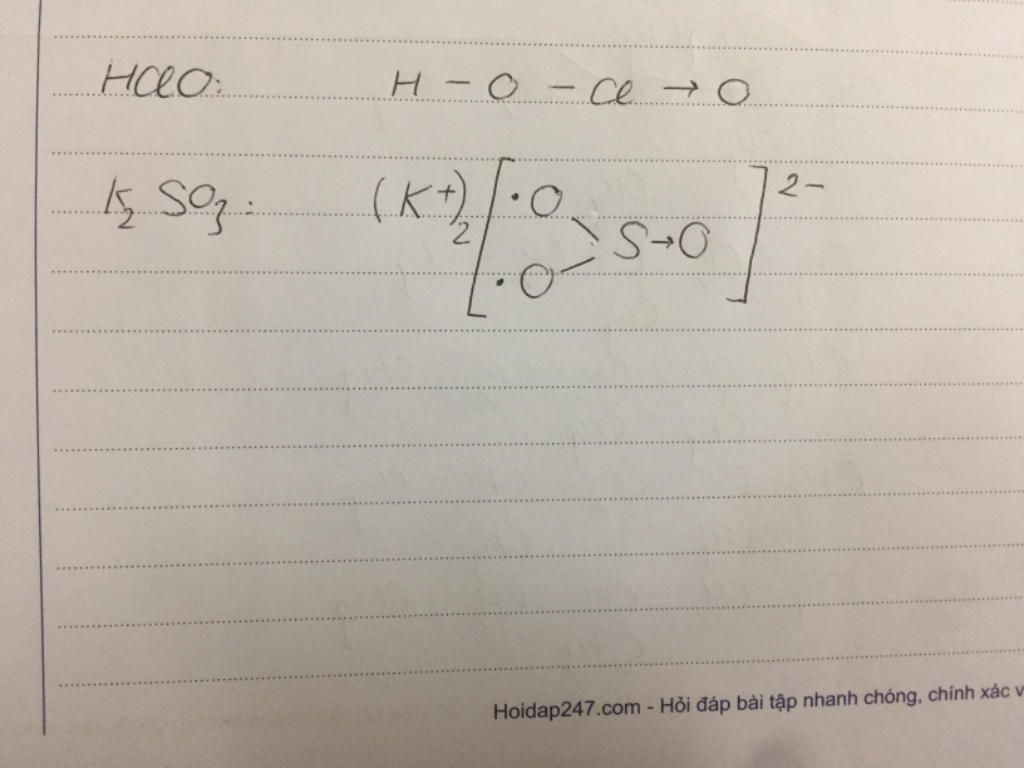 HClO: H - O - Cl → O
K2 SO3: (K+)2 [·O ·O S→O]2-
Hoidap247.com - Hỏi đáp bài tập nhanh chóng, chính xác v